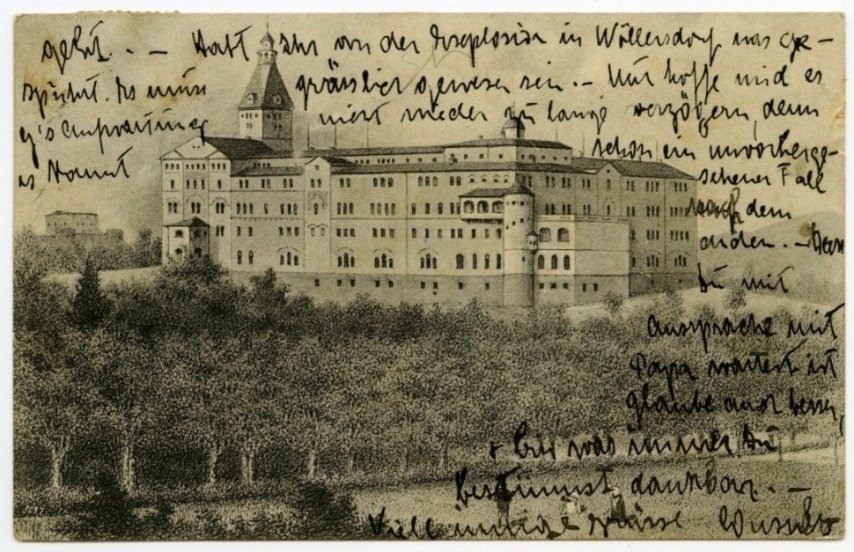 geht. – Habt Ihr von der Explosion in Wöllersdorf was ge-
spührt. Es muss grässlich gewesen sein. – Nur hoffe und es
nicht wieder zu lange verzögern, denn
es kommt schon ein unvorherge-
sehener Fall
nach dem
andern. – Wenn
Du mit
Aussprache mit
Papa wartest ist
glaube auch besser,
+ bin was immer Du
bestimmst dankbar. –
Viele innige Grüsse